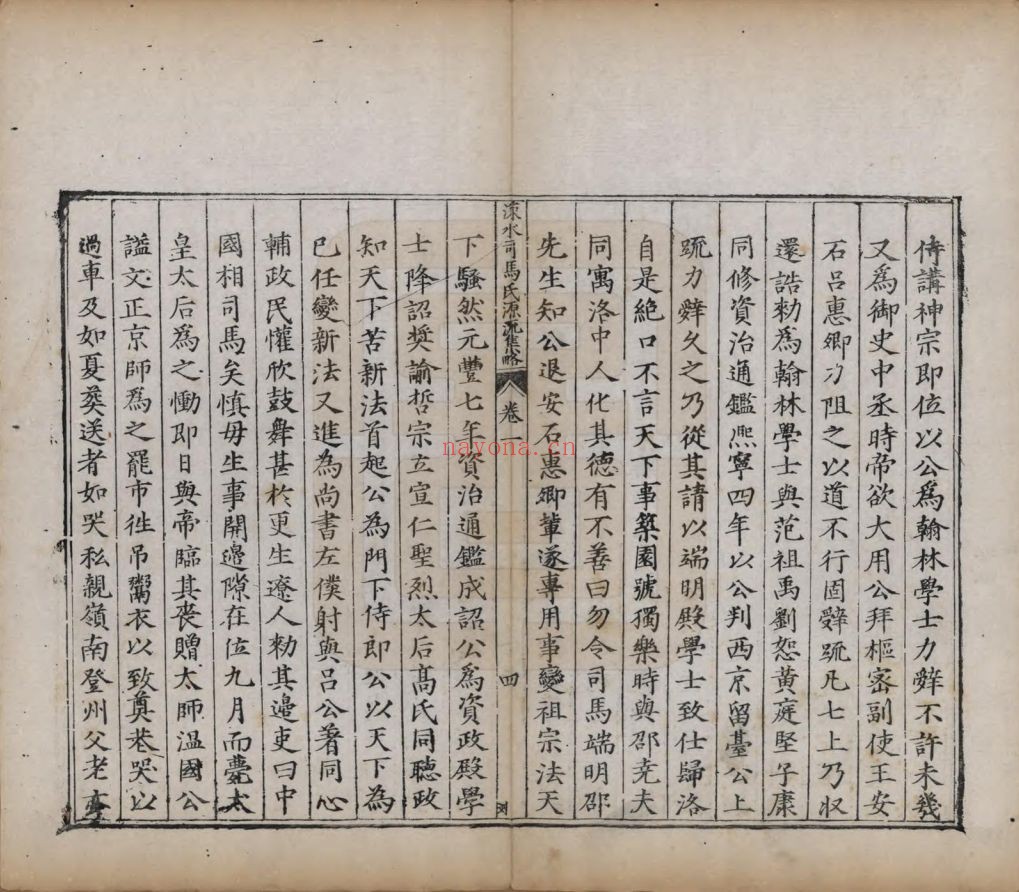 侍講神宗即位以公爲翰林學士力辤不許未幾
又爲御史中丞時帝欲大用公拜樞密副使王安
石呂惠卿力阻之以道不行固辤疏凡七上乃収
還誥勑爲翰林學士與范祖禹劉恕黃庭堅子康
同修資治通鑑熈寧四年以公判西京留臺公上
疏力辤久之乃從其請以端明殿學士致仕歸洛
自是絶口不言天下事築園號獨樂時與邵尭夫
同寓洛中人化其德有不善曰勿令司馬端明邵
先生知公退安石惠卿軰遂專用事變祖宗法天
涑水司馬氏源流集略 卷 四
下騷然元豐七年資治通鑑成詔公爲資政殿學
士降詔奬諭哲宗立宣仁聖烈太后髙氏同聽政
知天下苦新法首起公為門下侍郎公以天下為
已任變新法又進為尚書左僕射與呂公著同心
輔政民懽欣鼓舞甚於更生遼人勑其邉吏曰中
國相司馬矣慎毋生事開邉隙在位九月而薨太
皇太后爲之慟即日與帝臨其喪贈太師溫國公
謚文正京師爲之罷市徃吊鬻衣以致奠巷哭以
過車及如夏葬送者如哭私親嶺南登州父老亦
nayona.cn